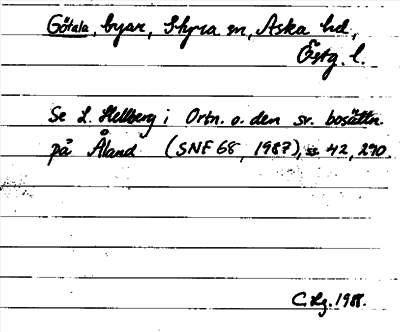 Götala, byar, Styra sn, Aska hd,
Östg. l.
Se L. Hellberg i Ortn. o. den sv. bosättn.
på Åland (SNF 68, 1987), s. 42, 290.
C. Hg. 1988.